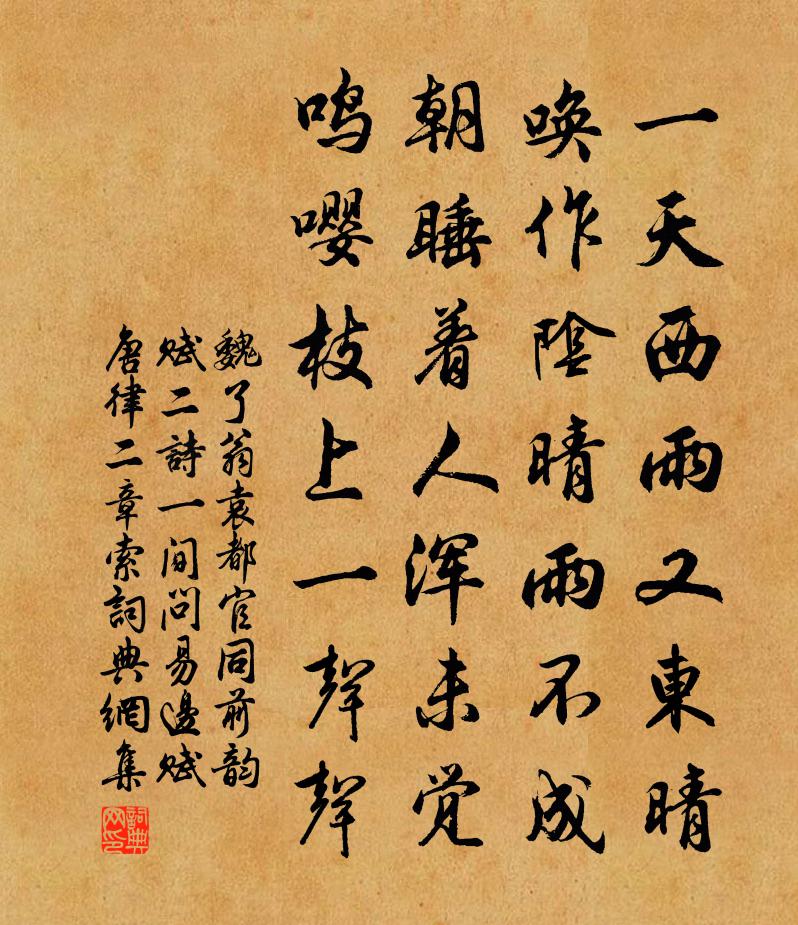 一天西雨又東晴
喚作陰晴雨不成
朝睡着人浑未觉
鸣嘤枝上一聲聲
魏了翁袁都官同前韵
赋二詩一间問易邊赋
唐律二章索詞典網集
詞典网印